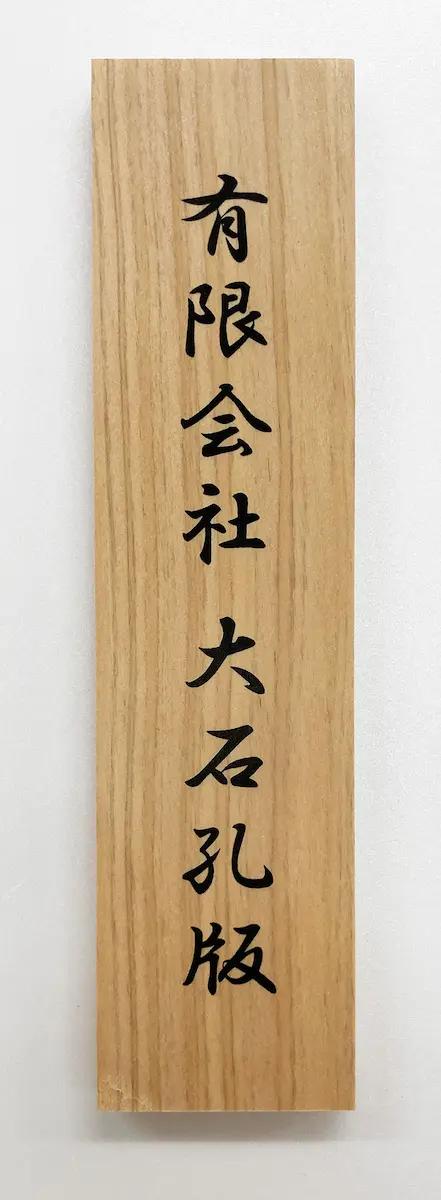 有限会社 大石孔版